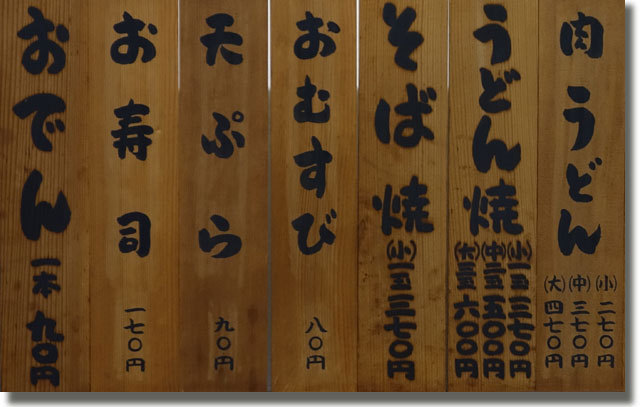 肉うどん
(小)二七〇円
(中)三七〇円
(大)四七〇円
うどん焼
(小)一玉三七〇円
(中)二玉五〇〇円
(大)三玉六〇〇円
そば焼
(小)一玉三七〇円
おむすび
八〇円
天ぷら
九〇円
お寿司
一七〇円
おでん
一本九〇円